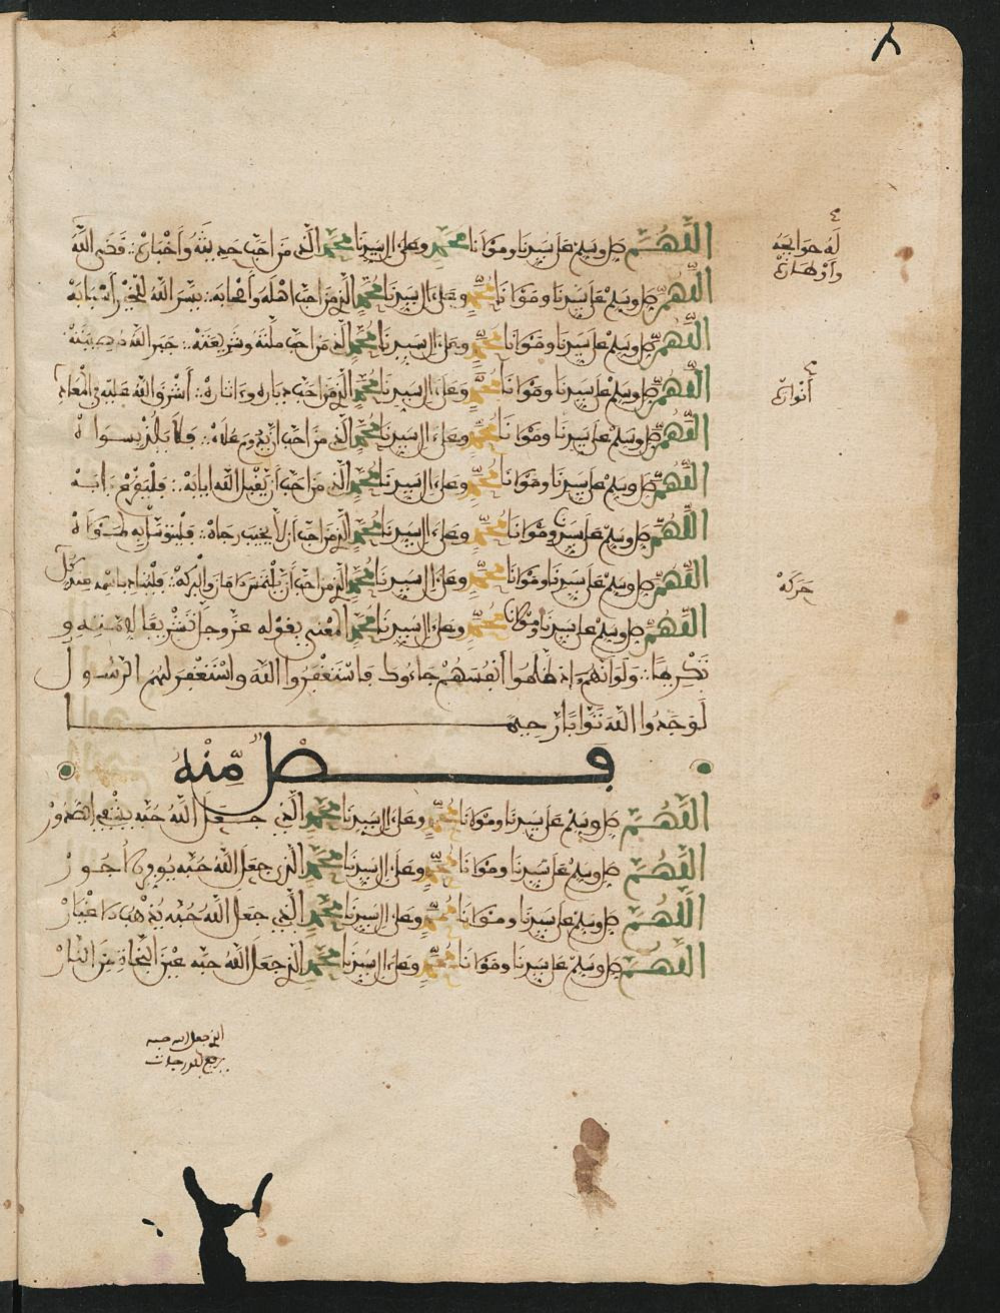 اللَّهُمَّ صل وسلم على سيدنا ومولانا محمد وعلى ال سيدنا محمد الذي من احب حديثه وأخباره ∴ قضى الله
له حوايجه
وأوطاره
اللَّهُمَّ صل وسلم على سيدنا ومولانا محمد وعلى ال سيدنا محمد الذي من احب اهله وأصحابه ∴ يسر الله للخير أسبابه
اللَّهُمَّ صل وسلم على سيدنا ومولانا محمد وعلى ال سيدنا محمد الذي من احب ملته وشريعته ∴ جبر الله
اللَّهُمَّ صل وسلم على سيدنا ومولانا محمد وعلى ال سيدنا محمد الذي من احب دياره وءاثاره ∴ أشرق الله عليه في
أنواره
اللَّهُمَّ صل وسلم على سيدنا ومولانا محمد وعلى ال سيدنا محمد الذي من احب ∴ فلا يلذ بسواه
اللَّهُمَّ صل وسلم على سيدنا ومولانا محمد وعلى ال سيدنا محمد الذي من احب ان يقبل الله ايابه ∴ فليقرع بابه
اللَّهُمَّ صل وسلم على سيدنا ومولانا محمد وعلى ال سيدنا محمد الذي من احب ان لا يخيب رجاه ∴ فليتوسل به
اللَّهُمَّ صل وسلم على سيدنا ومولانا محمد وعلى ال سيدنا محمد الذي من احب أن يلتمس والبركة ∴ باسمه عند كل
حركة
اللَّهُمَّ صل وسلم على سيدنا ومولانا محمد وعلى ال سيدنا محمد المعني بقوله عز وجل تشريفا لامته و
ولو انهم إذ ظلموا أنفسهم جاءوك فاستغفروا الله واستغفر لهم الرسول
لوجدوا الله توابا رحيما
فصل منه
اللَّهُمَّ صل وسلم على سيدنا ومولانا محمد وعلى ال سيدنا محمد الذي جعل الله حبه يشفي الصدور
اللَّهُمَّ صل وسلم على سيدنا ومولانا محمد وعلى ال سيدنا محمد الذي جعل الله حبه يوفر الاجور
اللَّهُمَّ صل وسلم على سيدنا ومولانا محمد وعلى ال سيدنا محمد الذي جعل الله حبه يذهب الاغيار
اللَّهُمَّ صل وسلم على سيدنا ومولانا محمد وعلى ال سيدنا محمد الذي جعل الله حبه عين النجاة من النار
الذي جعل الله حبه
يرفع الدرجات